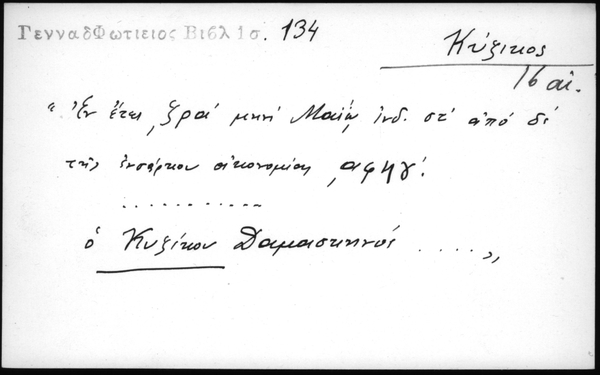 ΓενναδΦωτιειος Βιβλ 1σ. 134
Κύζικος
16 αἰ.
"Ἐν ἔτει ͵ζραʹ μηνὶ Μαΐῳ, ἰνδ. στʹ ἀπὸ δὲ
τῆς ἐνσάρκου οἰκονομίας ͵αφηγʹ.
............
ὁ Κυζίκου Δαμασκηνός ....."